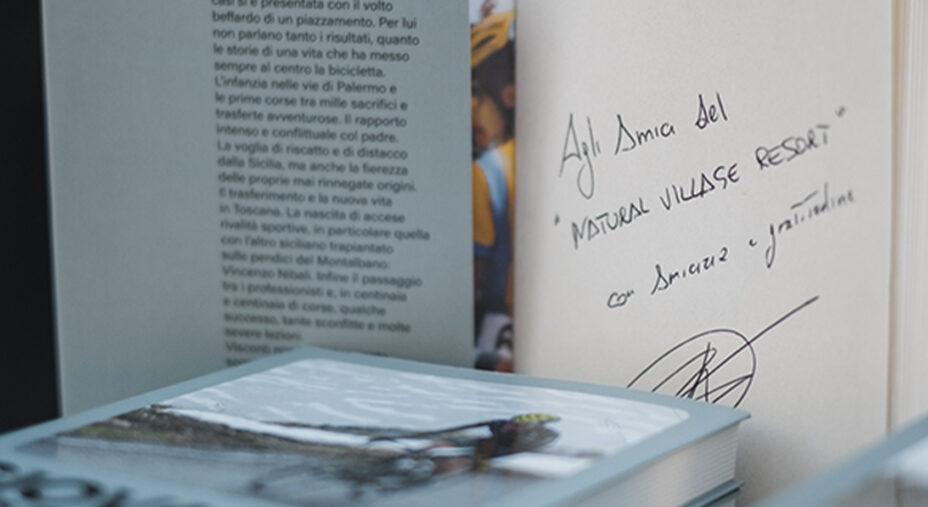 casi si è presentata con il volto
beffardo di un piazzamento. Per lui
non parlano tanto i risultati, quanto
le storie di una vita che ha messo
sempre al centro la bicicletta.
L'infanzia nelle vie di Palermo e
le prime corse tra mille sacrifici e
trasferte avventurose. Il rapporto
intenso e conflittuale col padre.
La voglia di riscatto e di distacco
dalla Sicilia, ma anche la fierezza
delle proprie mai rinnegate origini.
Il trasferimento e la nuova vita
in Toscana. La nascita di accese
rivalità sportive, in particolare quella
con l'altro siciliano trapiantato
sulle pendici del Montalbano:
Vincenzo Nibali. Infine il passaggio
tra i professionisti e, in centinaia
e centinaia di corse, qualche
successo, tante sconfitte e molte
severe lezioni.
Visconti
Agli Amici del
"NATURAL VILLAGE RESORT"
con Amicizia e gratitudine